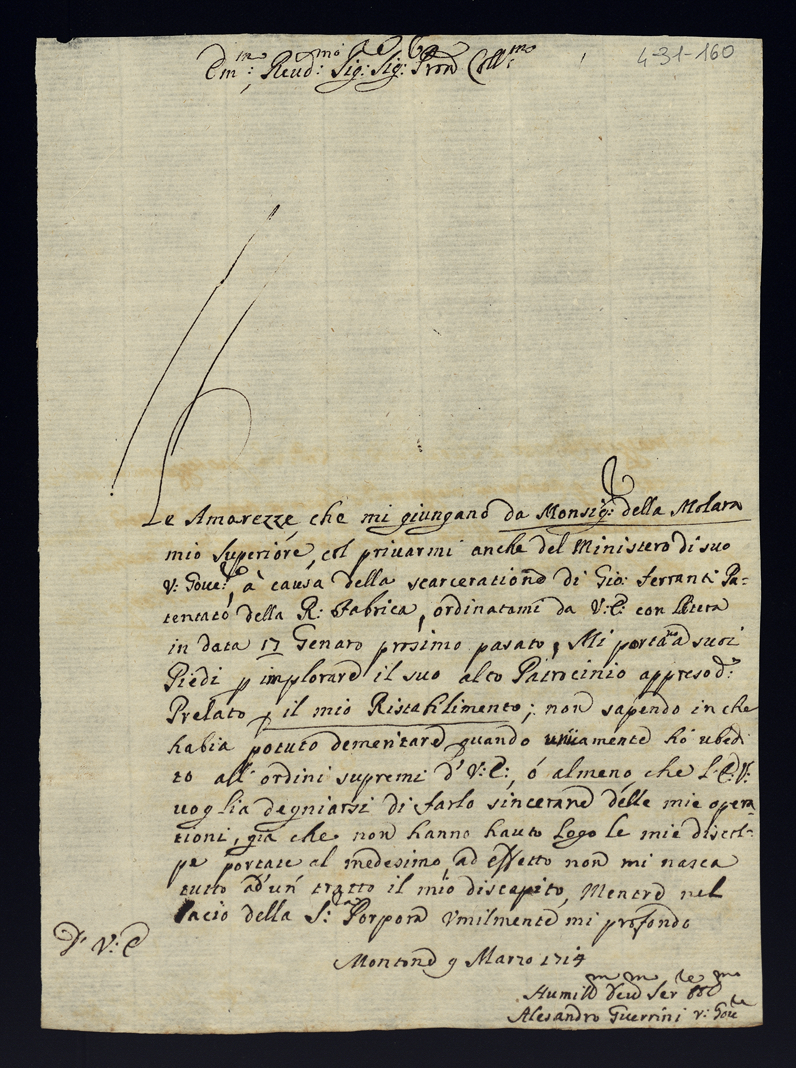 4-31-160
Em:mo Reud:mo Sig: Sig: Pron Coll:mo
Le Amarezze che mi giungano da Monsig:r della Molara
mio superiore, col priuarmi anche del Ministero di suo
V: Goue:re, à causa della scarceratione di Gio: Ferranti Pa-
tentato della R: Fabrica, ordinatami da V:E: con lettera
in data 17 Genaro prosimo pasato, Mi porta a suoi
Piedi p implorare il suo alto Patrocinio appreso d:o
Prelato p il mio Ristabilimento; non sapendo in che
habia potuto demeritare quando unicamente hò ubedi
to all'ordini supremi d'V:E:, ó almeno che l'E:V:
uoglia degniarsi di farlo sincerare delle mie opera
tioni, già che non hanno hauto logo le mie discol-
pe portate al medesimo, ad effetto non mi nasca
tutto ad'un tratto il mio discapito, Mentre nel
bacio della S:a Porpora Vmilmente mi profondo
D' V: E
Montone 9 Marzo 1714
Humill:mo Deu:mo Ser:re
Alesandro Guerrini V: Goue:re